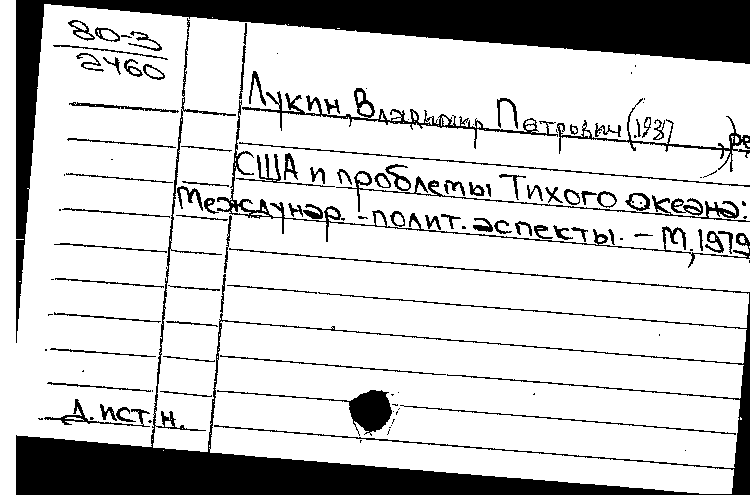 80-3
2460
Лукин, Владимир Петрович (1937 ), ре
США и проблемы Тихого океана:
Междунар.-полит. аспекты. - М, 1979
Д. ист. н.